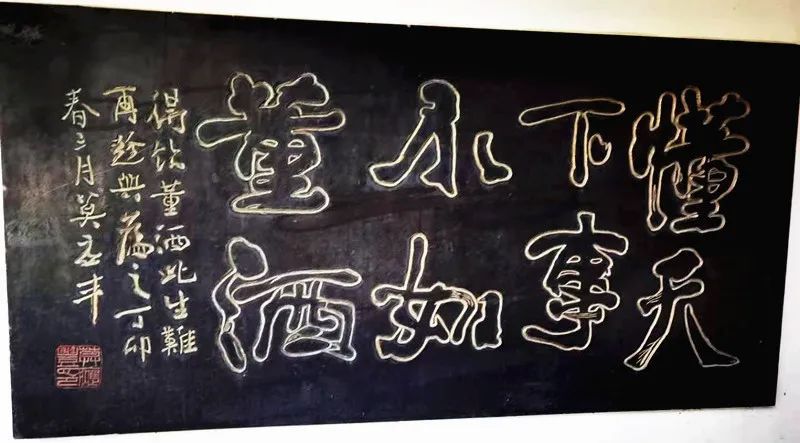 懂天
下事
不如
董酒
得饮董酒此生難
再趁興為之丁卯
春三月莫应丰